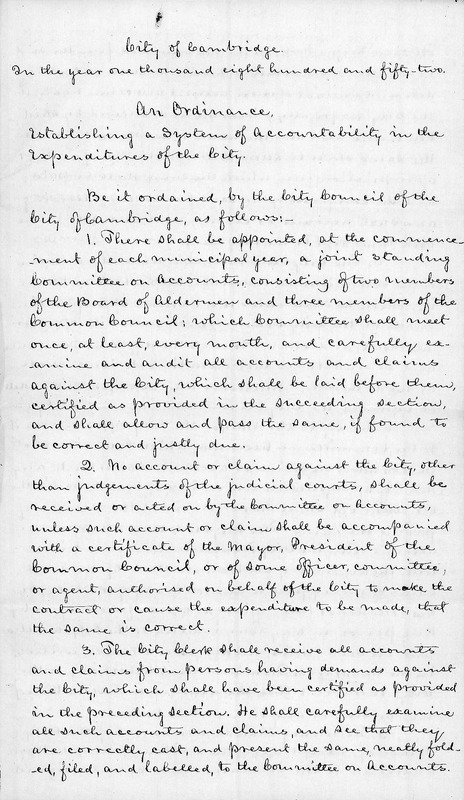 City of Cambridge.
In the year one thousand eight hundred and fifty-two.
An Ordinance,
Establishing a System of Accountability in the
Expenditures of the City.
Be it ordained, by the City Council of the
City of Cambridge, as follows:-
1. There shall be appointed, at the commence-
-ment of each municipal year, a joint standing
Committee on Accounts, consisting of two members
of the Board of Aldermen and three members of the
Common Council; which Committee shall meet
once, at least, every month, and carefully ex-
-amine and audit all accounts and claims
against the City, which shall be laid before them,
certified as provided in the succeeding section,
and shall allow and pass the same, if found to
be correct and justly due.
2. No account or claim against the City, other
than judgements of the judicial courts, shall be
received or acted on by the Committee on Accounts,
unless such account or claim shall be accompanied
with a certificate of the Mayor, President of the
Common Council, or of some officer, committee,
or agent, authorised on behalf of the City to make the
contract or cause the expenditure to be made, that
the same is correct.
3. The City Clerk shall receive all accounts
and claims from persons having demands against
the City, which shall have been certified as provided
in the preceding section. He shall carefully examine
all such accounts and claims, and see that they
are correctly cast, and present the same, neatly fold-
-ed, filed, and labelled, to the Committee on Accounts.